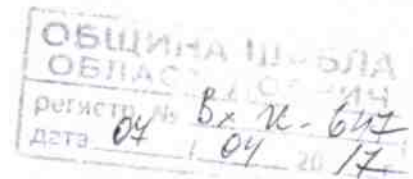 ОБЩИНА ШАБЛА
ОБЛАСТ ДОБРИЧ
регистр. № Вх К-647
дата 04 / 04 2017г.